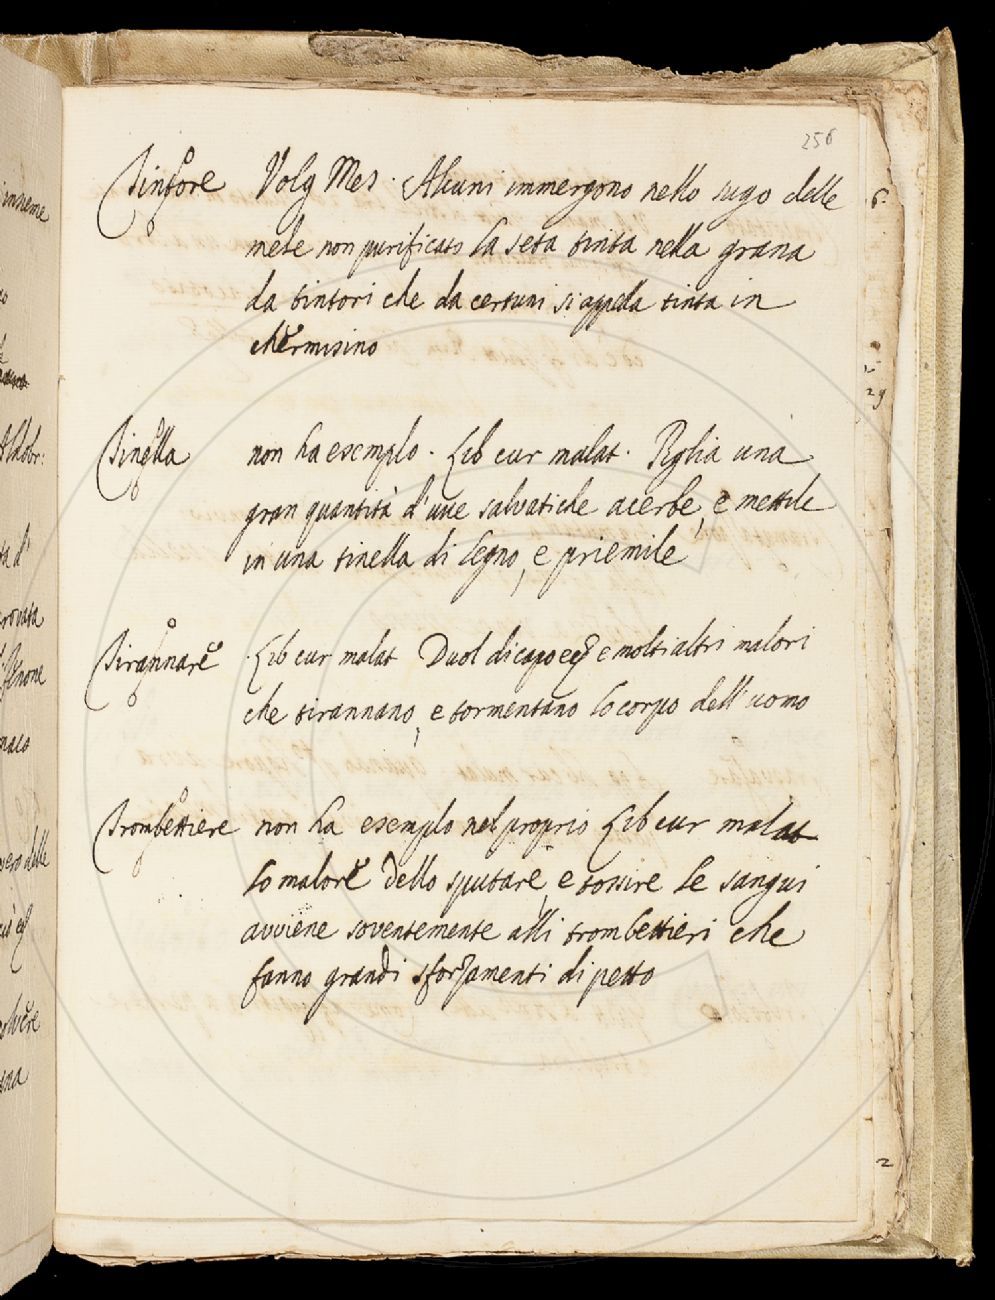 256
Tintore Volg Mes. Alcuni immergono nello sugo delle
mele non purificato la seta tinta nella grana
da tintori che da certuni si appella tinta in
chermisino
Tinella non ha esemplo. Lib cur malat. Piglia una
gran quantità d'uve salvatiche acerbe, e mettile
in una tinella di legno, e priemile
Tirannare Lib cur malat Duol di capo ec e molti altri malori
che tirannano, e tormentano lo corpo dell'uomo
Trombettiere non ha esemplo nel proprio Lib cur malat
Lo malore dello sputare, e tossire le sangui
avviene soventemente alli trombettieri che
fanno grandi sforzamenti di petto
insieme
rovata
2